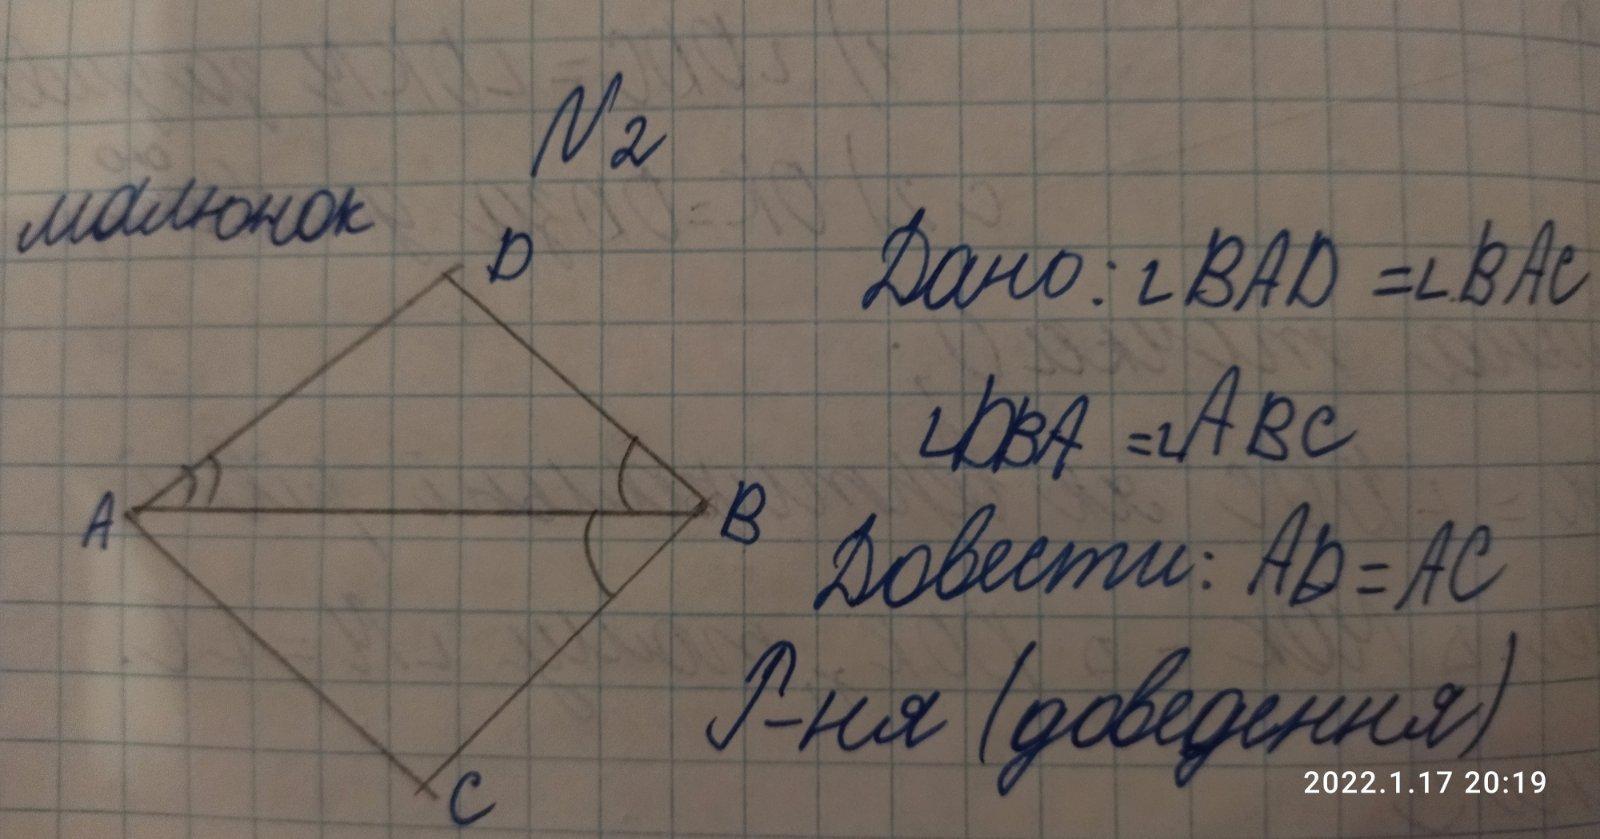 N2
малюнок
D
Дано: ∠BAD = ∠BAC
∠DBA = ∠ABC
A
B
Довести: AD = AC
Р-ня (доведення)
C
2022.1.17 20:19